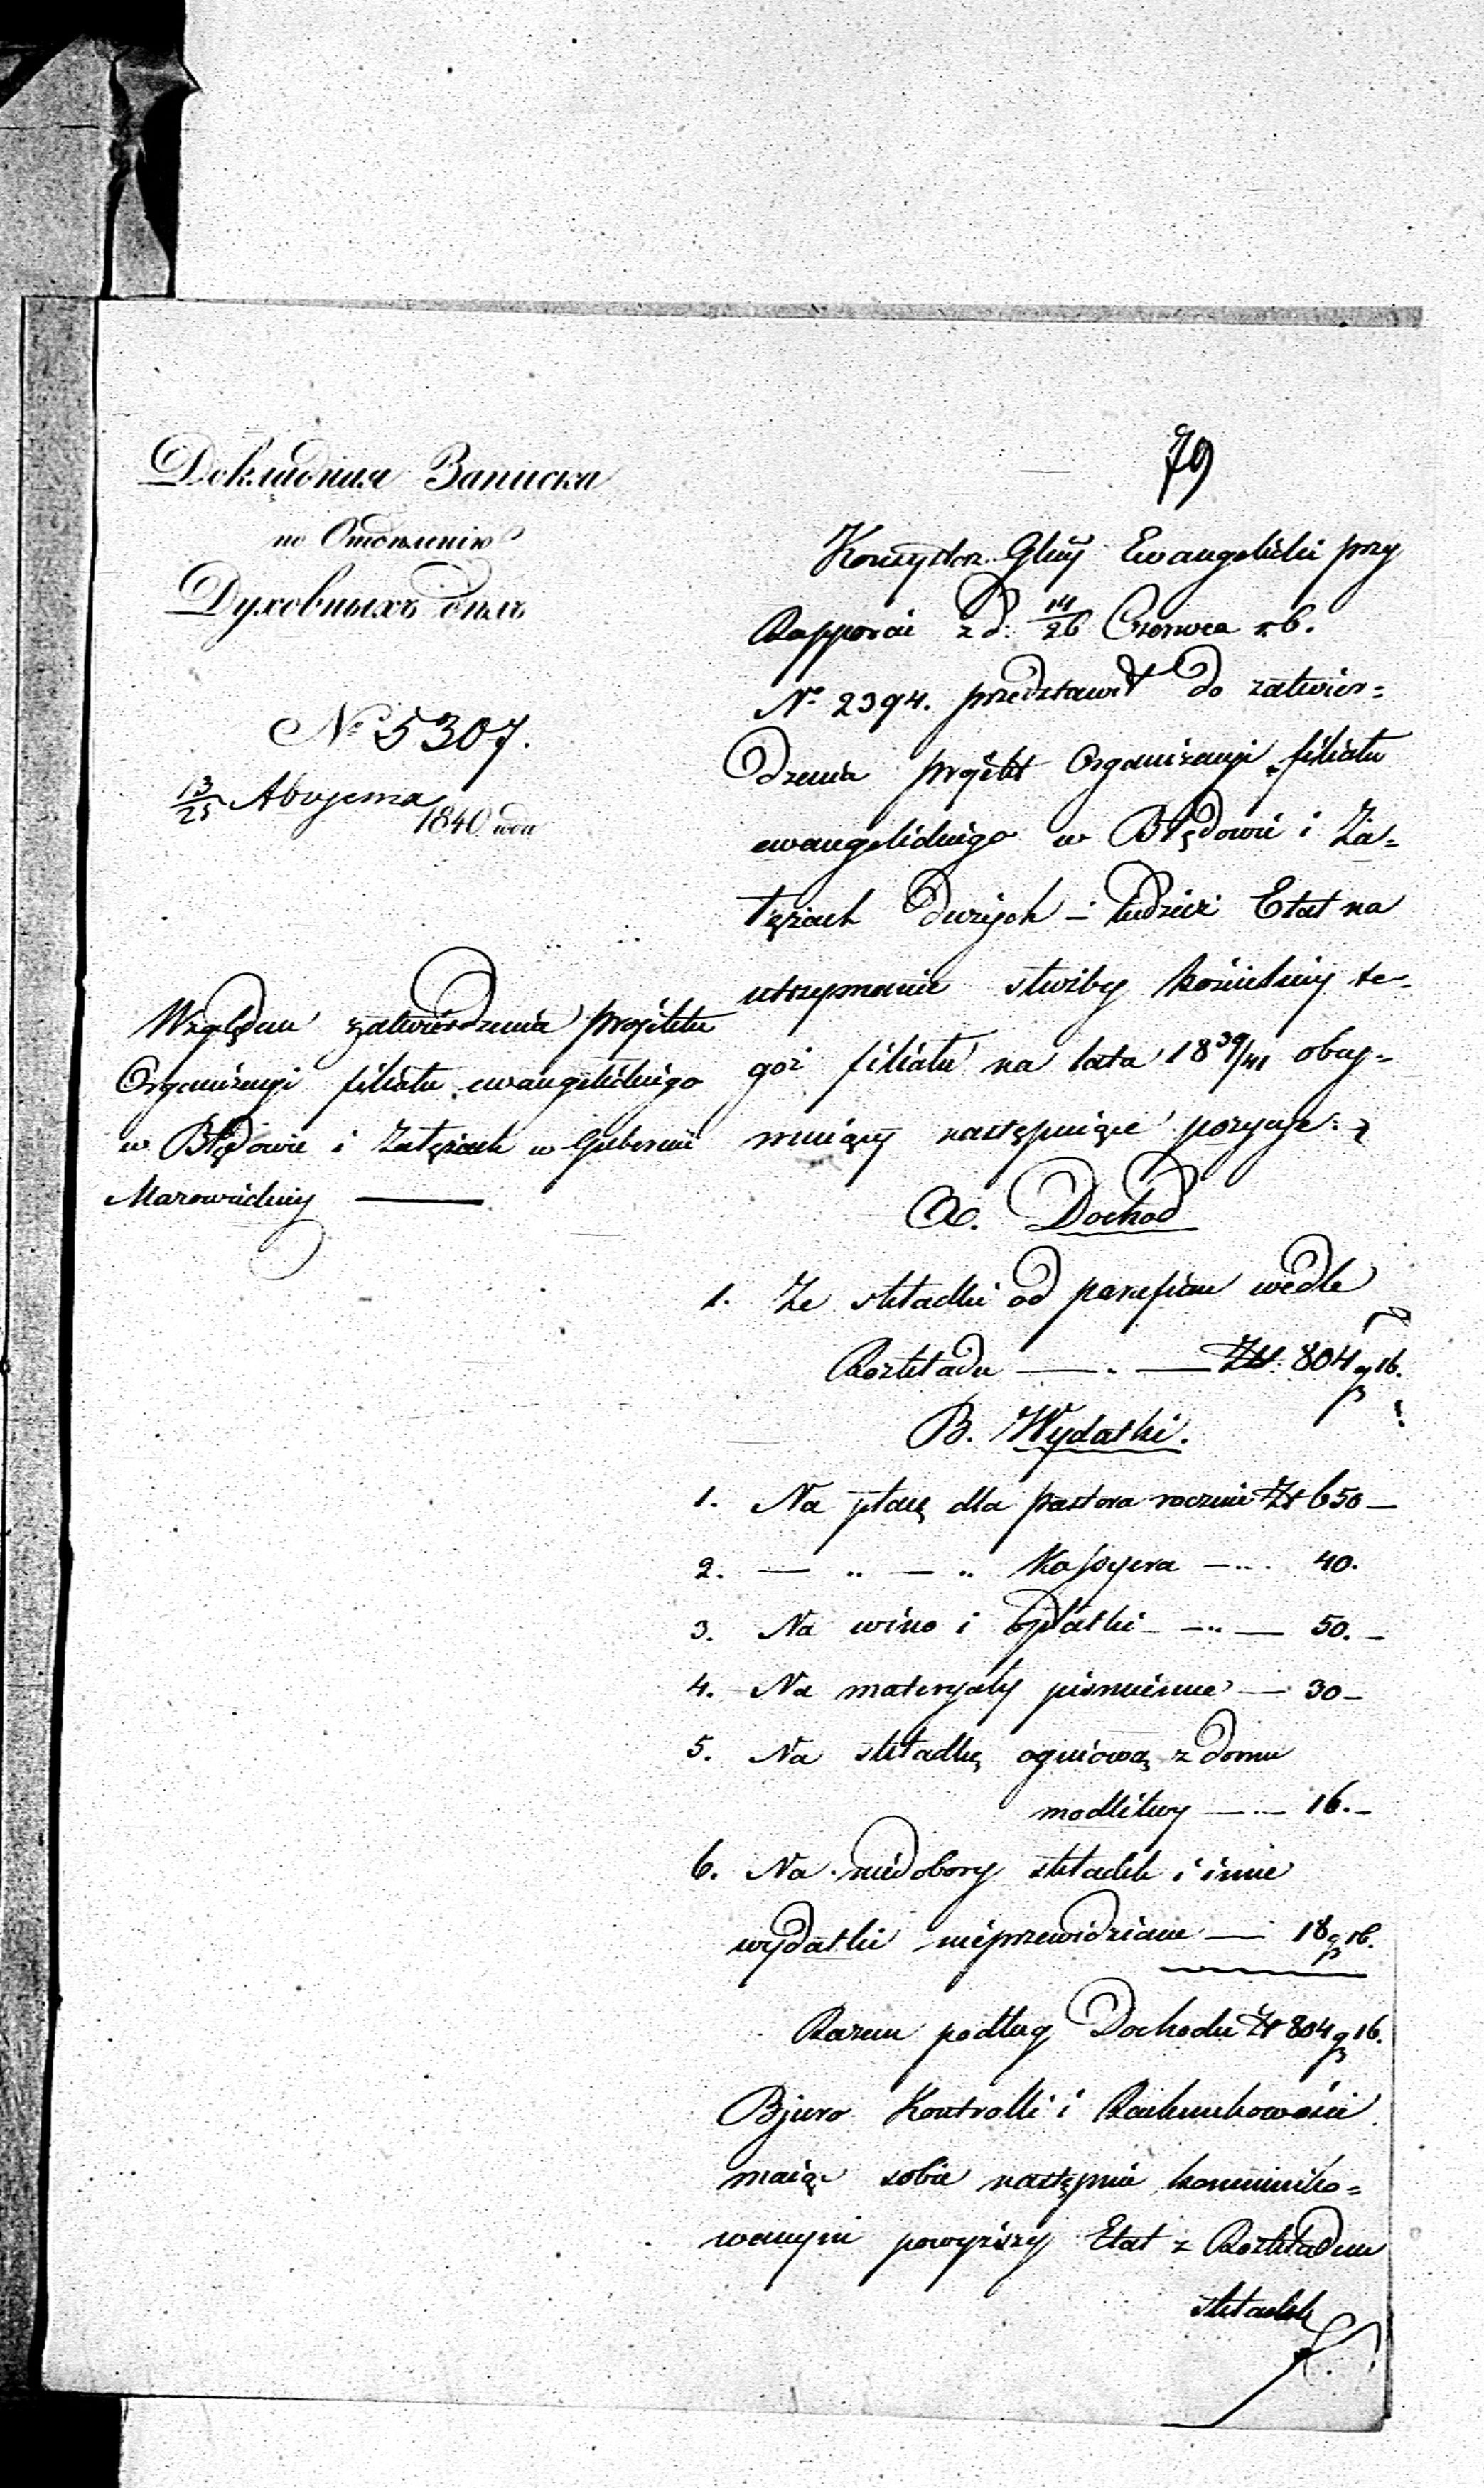 Докладная Записка
по Отдѣленію
Духовныхъ дѣлъ
№ 5307.
13/25 Августа 1840 года
Względem zatwierdzenia projektu
Organizacyi filiału ewangelickiego
w Błędowie i Załężach w Gubernii
Mazowieckiey
79
Konsystorz Głny Ewangelicki przy
Rapporcie z d: 14/26 Czerwca r. b.
№ 2394. przedstawił do zatwier=
dzenia projekt Organizacyi filiału
ewangelickiego w Błędowie i Za=
łężach dużych – tudzież Etat na
utrzymanie służby kościelney te=
goż filiału na lata 1839/41 obey=
muiący następuiące pozycye:
A. Dochod
1. Ze składki od parafian wedle
Rozkładu — „ — Zł. 804 gr 16.
B. Wydatki.
1. Na płacę dla pastora rocznie Zł 650 –
2. — „ — „ Kassyera — „ 40.
3. Na wino i opłatki — „ — 50. –
4. Na materyały piśmienne — 30 –
5. Na składkę ogniową z domu
modlitwy — „ — 16. –
6. Na niedobory składek i inne
wydatki nieprzewidziane — 18 gr 16.
Razem podług Dochodu Zł 804 gr 16.
Bjuro Kontrolli i Rachunkowości
maiąc sobie następnie kommuniko=
wanym powyższy Etat z Rozkładem
składek